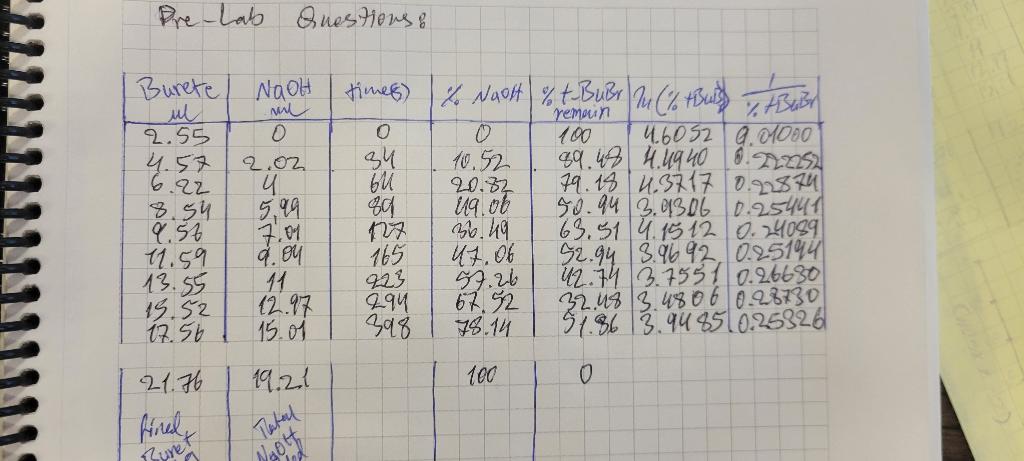 Pre-Lab Questions:
Burete ml | NaOH ml | time(s) | % NaOH | % t-BuBr remain | ln(% tBuBr) | 1/% tBuBr
2.55 | 0 | 0 | 0 | 100 | 4.6052 | 0.01000
4.57 | 2.02 | 34 | 10.52 | 89.48 | 4.4940 | 0.222252
6.22 | 4 | 64 | 20.82 | 79.18 | 4.3717 | 0.22874
8.54 | 5,99 | 89 | 49.06 | 50.94 | 3.9306 | 0.25441
9.56 | 7.01 | 127 | 36.49 | 63.51 | 4.1512 | 0.24089
11.59 | 9.04 | 165 | 47.06 | 52.94 | 3.9692 | 0.25194
13.55 | 11 | 223 | 57.26 | 42.74 | 3.7551 | 0.26630
15.52 | 12.97 | 294 | 67.52 | 32.48 | 3.4806 | 0.28730
17.56 | 15.01 | 398 | 78.14 | 51.86 | 3.9485 | 0.25326
21.76 | 19.21 | 100 | 0
Final | Total
Buret | NaOH